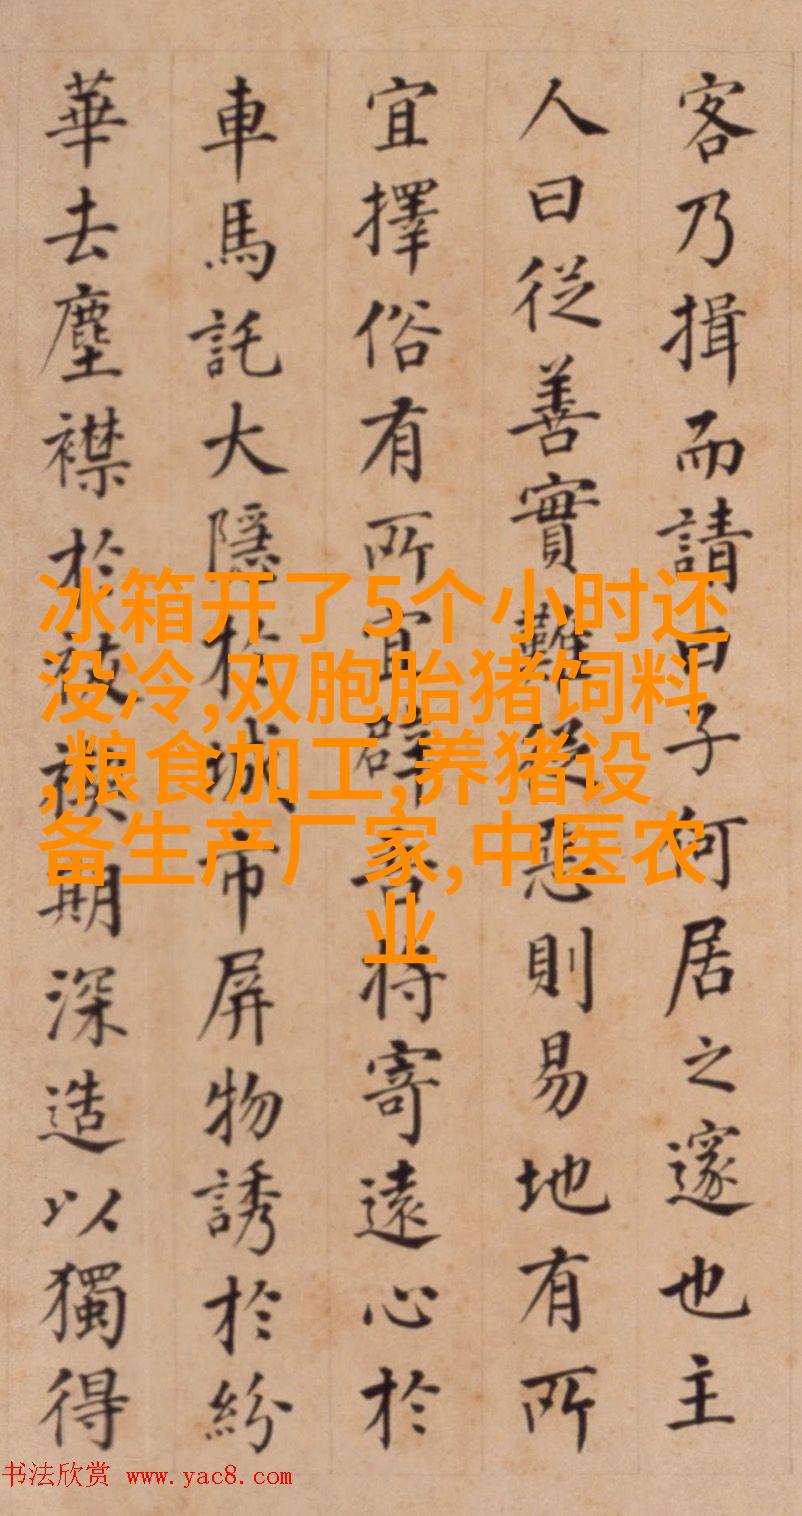 客乃揖而請曰子何居之邃也主
人曰從善實難從惡則易地有所
宜擇俗有所宜辟吾將寄遠心於
車馬託大隱於城市屏物誘於紛
華去塵襟於期深造以獨得
冰箱开了5个小时还
没冷,双胞胎猪饲料
,粮食加工,养猪设
备生产厂家,中医农
业
书法欣赏 www.yac8.com